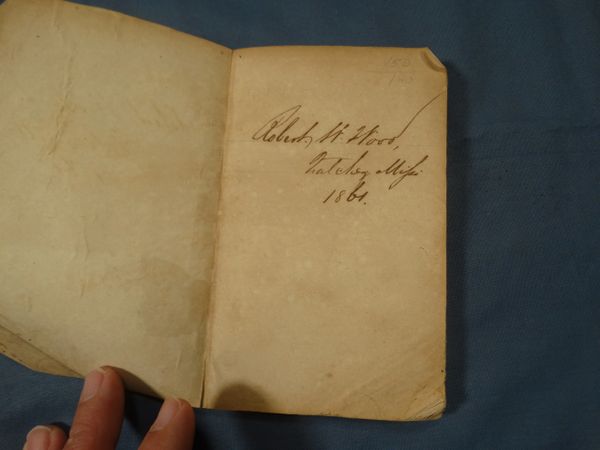 150
Robert W. Wood,
Natchez Missi
1861.